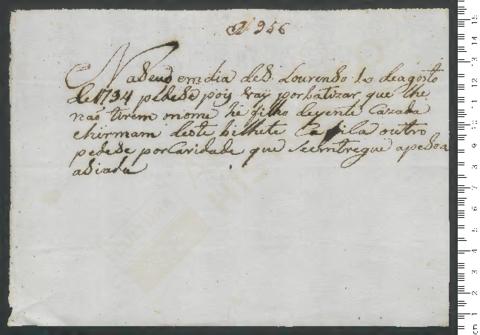 Nº 956
Naseu em dia de S. Lourenso 10 de agosto
de 1794 pedese pois vay por batizar, que lhe
não tirem o nome hé filho de gente Cazada
e hirmam deste bilhete la fica outro
pedese por Caridade que se emtregue a pesoa